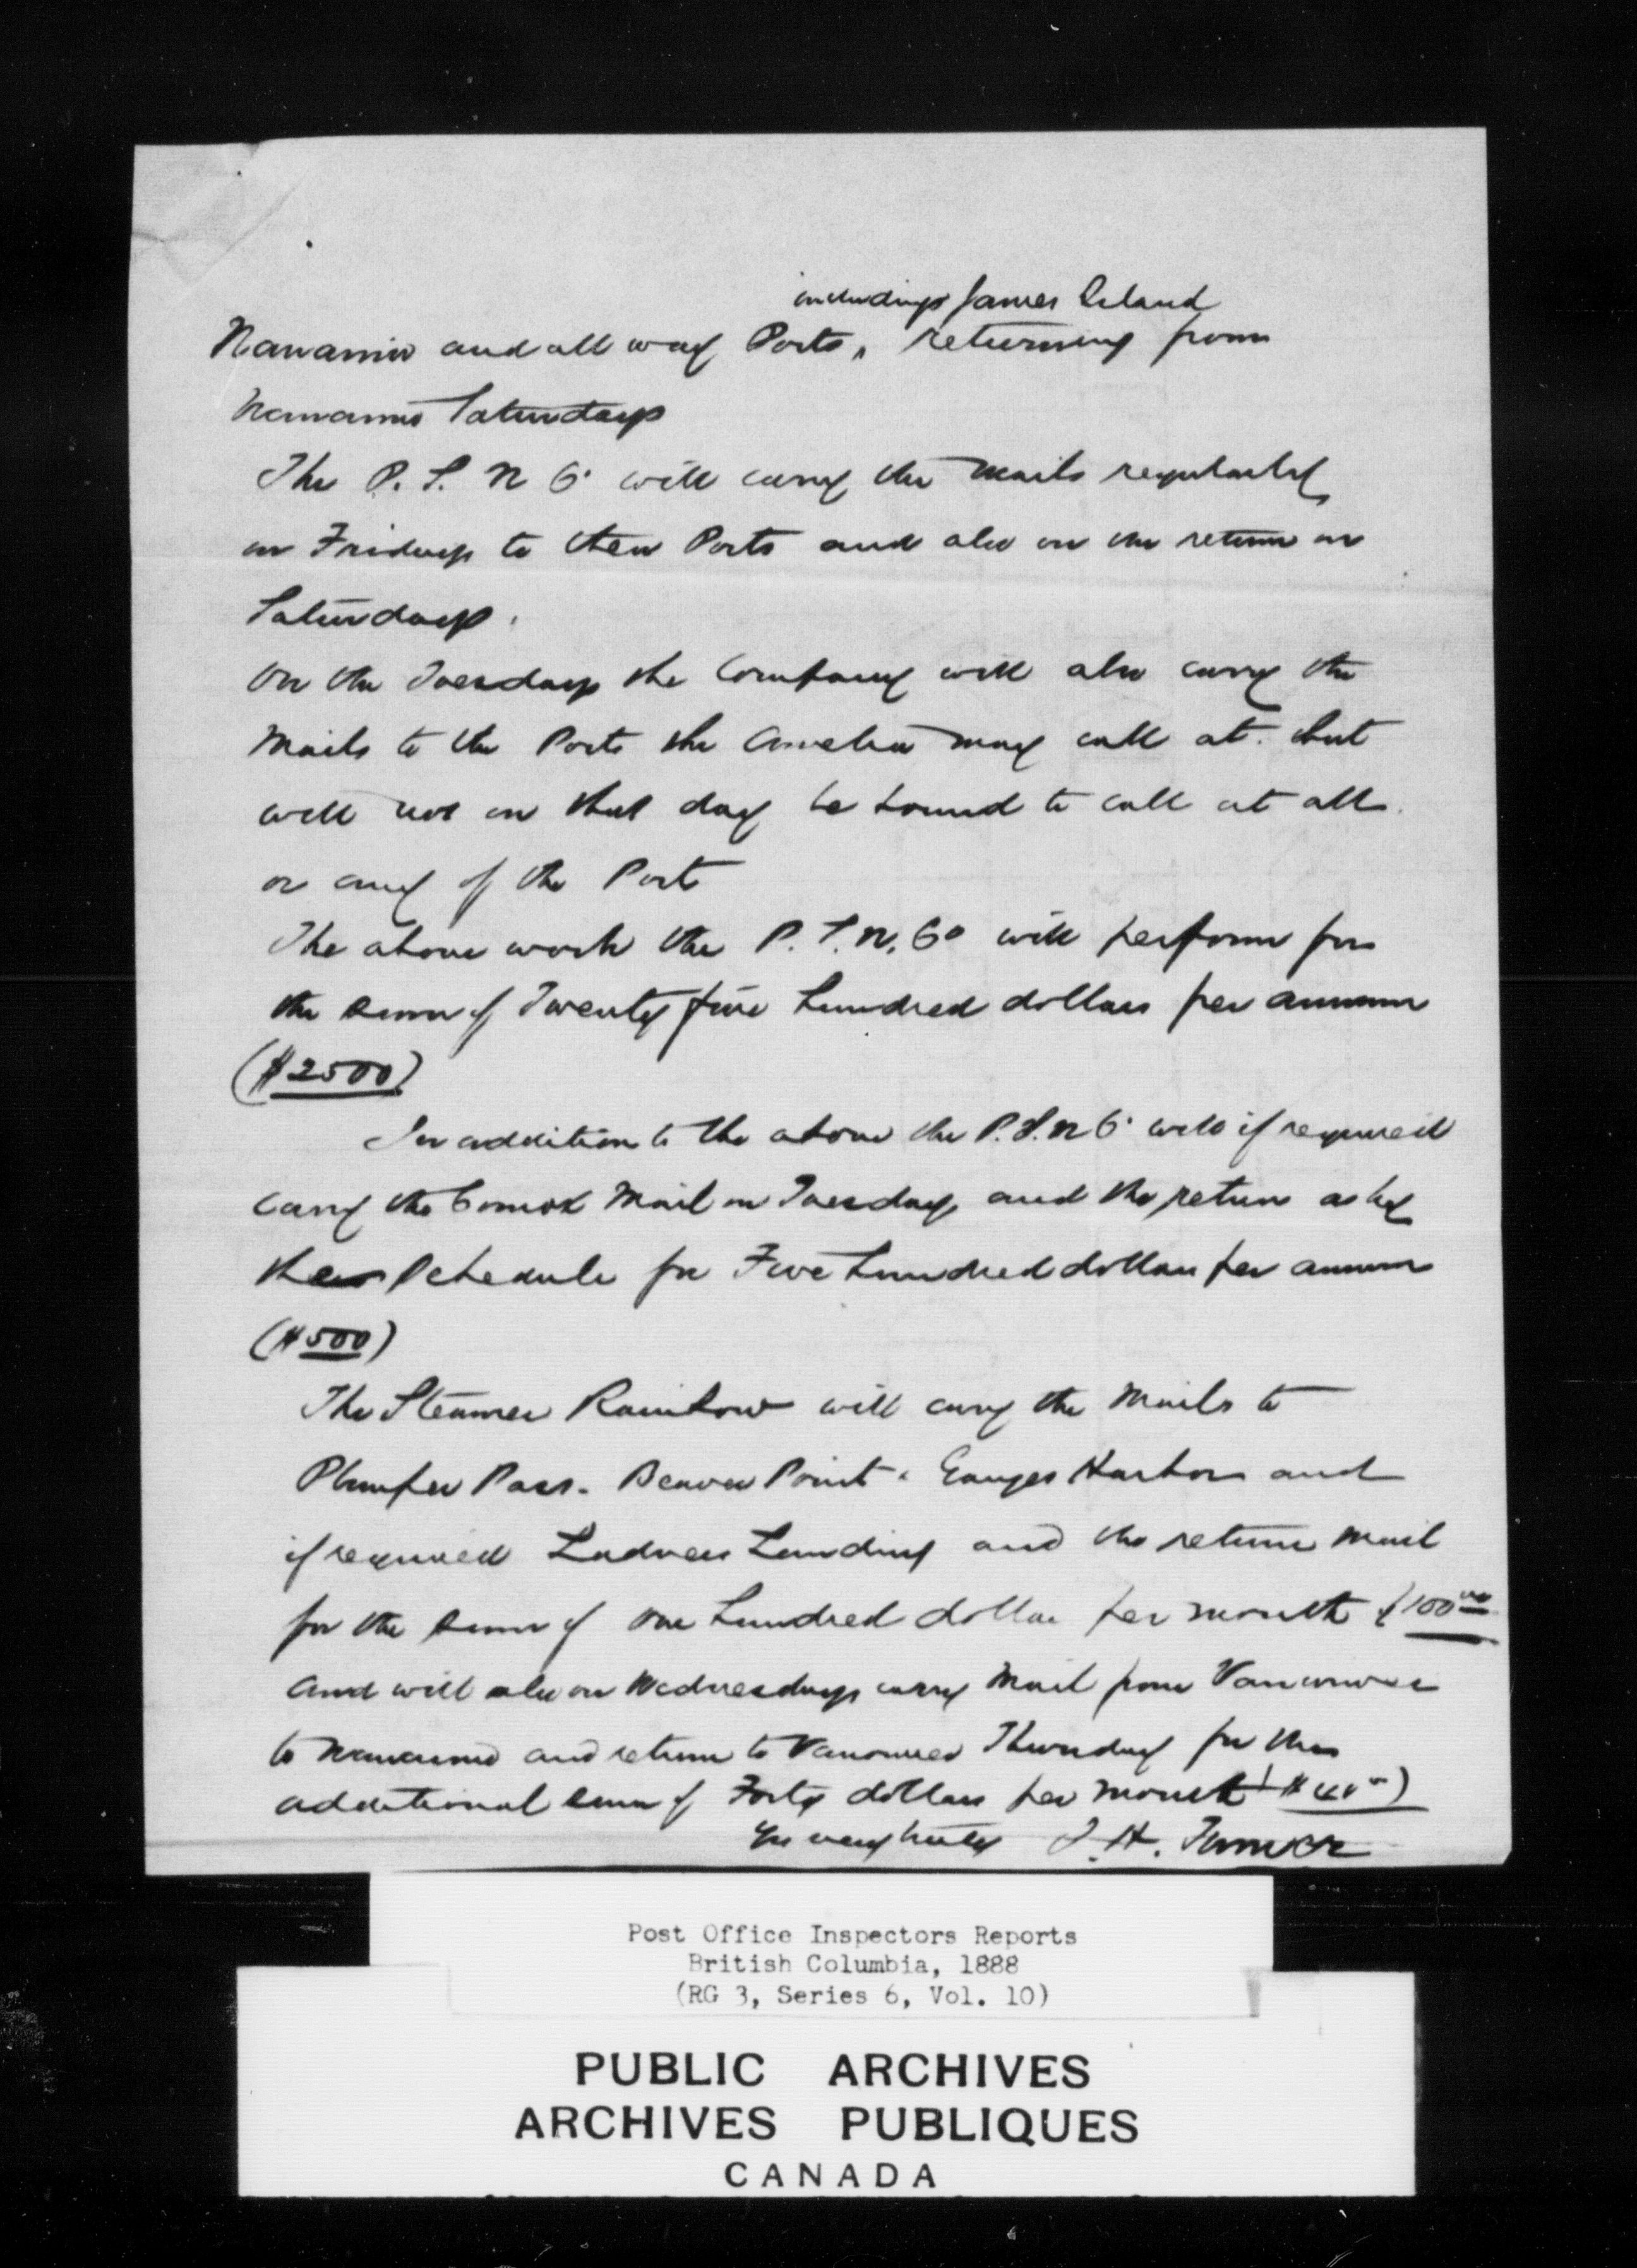 including James Island
Nanaimo and all way Ports, returning from
Nanaimo Saturdays
The P. S. N Co will carry the mails regularly
on Fridays to these Ports and also on the return on
Saturdays.
On the Tuesdays the Company will also carry the
Mails to the Ports the Amelia may call at. but
will not on that day be bound to call at all
or any of the Ports
The above work the P. S. N. Co will perform for
the sum of Twenty five hundred dollars per annum
($2500)
In addition to the above the P. S. N Co will if required
carry the Comox Mail on Tuesdays and the return as by
their schedule for Five hundred dollars per annum
($500)
The Steamer Rainbow will carry the Mails to
Plumper Pass. Beaver Point. Ganges Harbor and
if required Ladners Landing and the return mail
for the sum of one hundred dollars per month $100 00
and will also on Wednesdays carry Mail from Vancouver
to Nanaimo and return to Vancouver Thursday for the
additional sum of Forty dollars per month
Yrs very truly J. H. Turner
Post Office Inspectors Reports
British Columbia, 1888
(RG 3, Series 6, Vol. 10)
PUBLIC ARCHIVES
ARCHIVES PUBLIQUES
CANADA